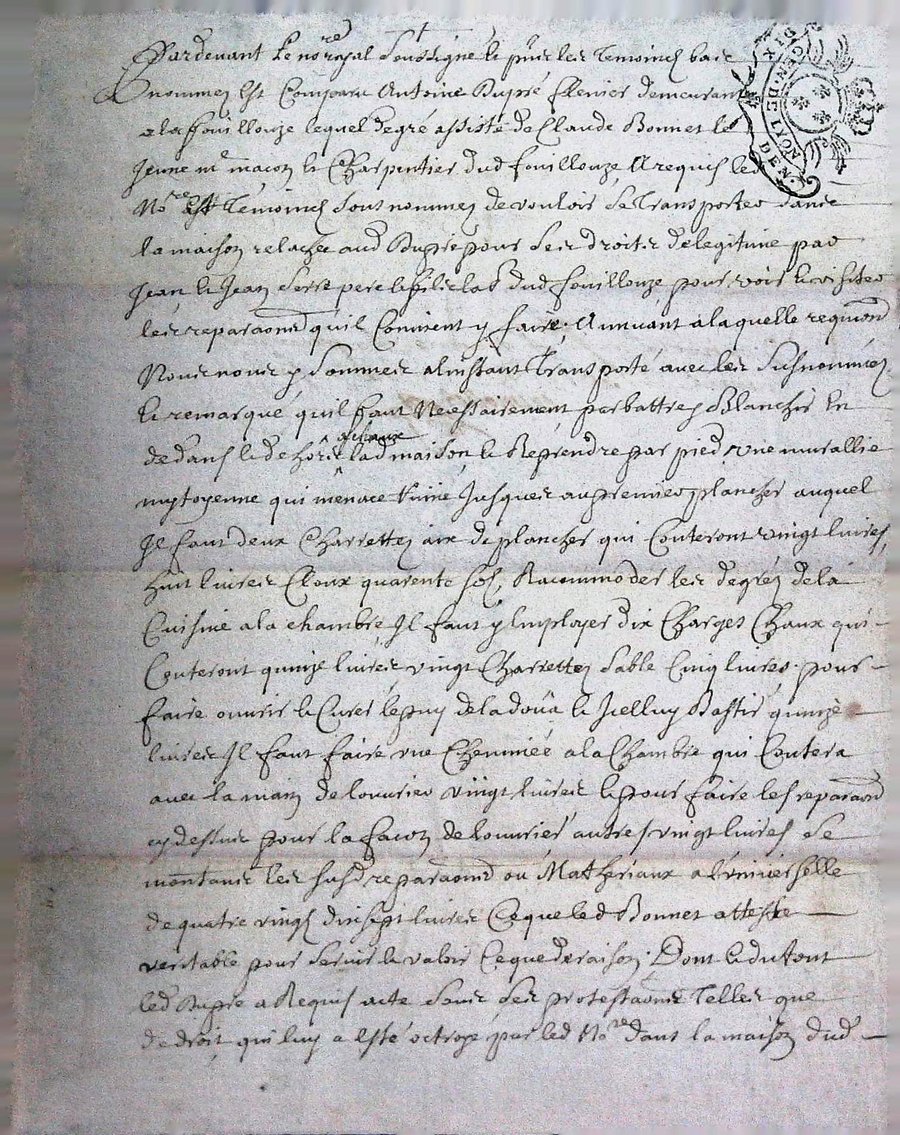 Pardevant Le no.re royal Soussigné & pnts les Temoins bas
nommez Est Comparu Antoine Dupré demeurant
a la fouillouze lequel de gré assisté de Claude Bonnet le
Jeune m.e macon & Charpentier dud fouillouze A requis led
No.re Temoins sous nommez de vouloir se Transporter dans
la maison relachee aud Dupré pour ses droits de legitime par
Jean & Jean Serre pere & fils dud fouillouze pour voir & visiter
les reparaons quil Convient y faire. Auquel requisition
Nous nous y sommes a linstant Transporté avec les susnommez
& remarqué quil faut Necessairement Blanchir En
dedans & dehors lad maison & Reprendre par pied Une murallie
mytoyenne qui menace Ruine Jusques au premier plancher auquel
Il faut deux Charrettes aix de plancher qui Couteront vingt livres,
huit livres Cloux quarente sols, Racommoder les degrez de la
Cuisine a la chambre Il faut y Employer dix Charges Chaux qui
Couteront quinze livres, vingt Charrettes sable Cinq livres. pour
faire ouvrir & Curer le puy de la & Icelluy Bastir quinze
livres Il faut faire une Cheminée a la Chambre qui Coutera
avec la main de louvrier vingt livres & pour faire les reparaons
cy dessus pour la facon de louvrier autres vingt livres Se
montants les susd reparaons ou Matheriaux a luniverselle
de quatre vingt dixsept livres Ce que led Bonnet atteste
veritable pour servir & valoir Ceque de raison. Dont & du tout
led Dupré a Requis acte sous ses protestaons Telles que
de droit qui luy a Esté octroyé par led No.re dans la maison dud